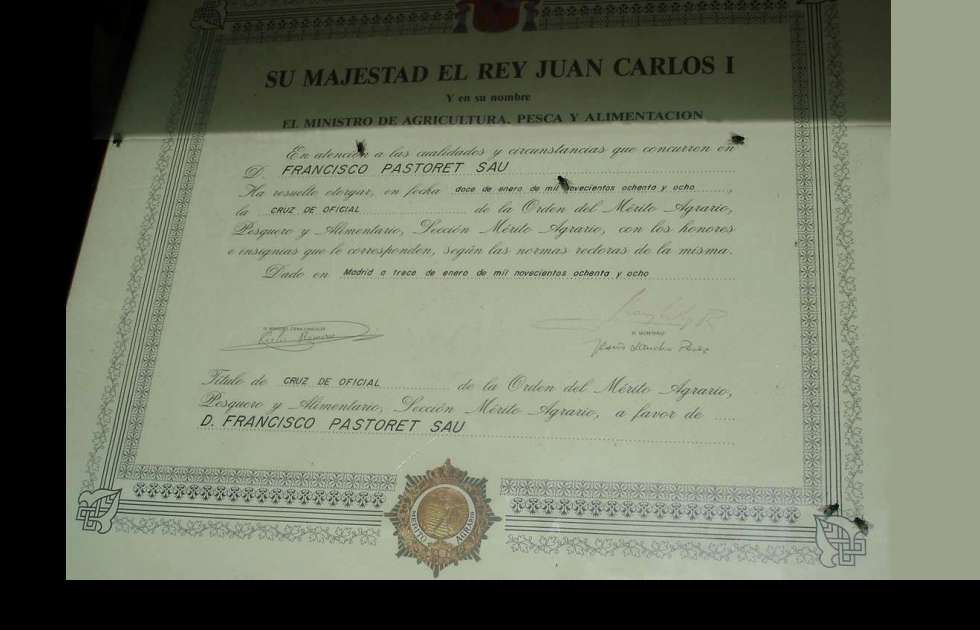 SU MAJESTAD EL REY JUAN CARLOS I
Y en su nombre
EL MINISTRO DE AGRICULTURA, PESCA Y ALIMENTACION
En atención a las cualidades y circunstancias que concurren en
D. FRANCISCO PASTORET SAU
Ha resuelto otorgar, en fecha doce de enero de mil novecientos ochenta y ocho,
la CRUZ DE OFICIAL de la Orden del Mérito Agrario,
Pesquero y Alimentario, Sección Mérito Agrario, con los honores
e insignias que le corresponden, según las normas rectoras de la misma.
Dado en Madrid a trece de enero de mil novecientos ochenta y ocho
Título de CRUZ DE OFICIAL de la Orden del Mérito Agrario,
Pesquero y Alimentario, Sección Mérito Agrario, a favor de
D. FRANCISCO PASTORET SAU
MERITO AGRARIO